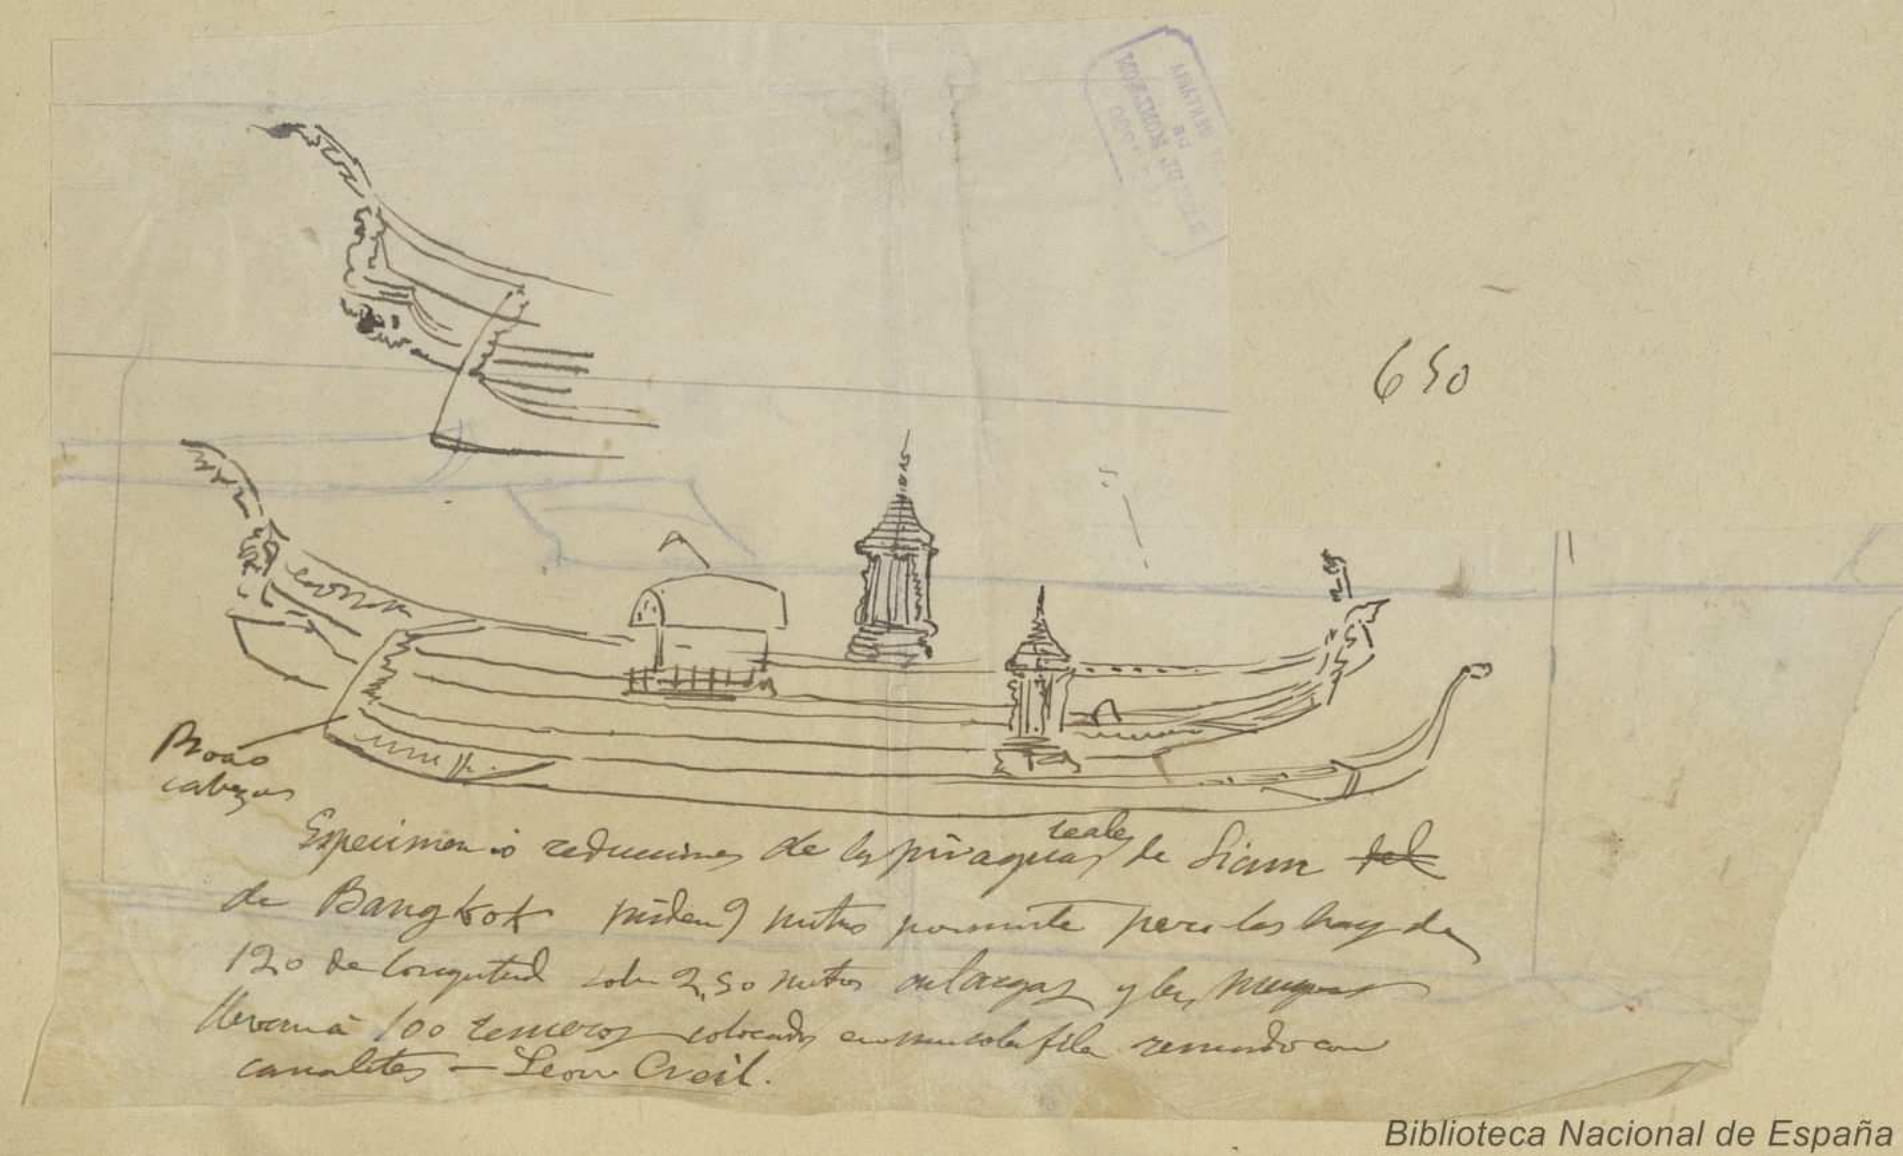 650
Proas
cabezas
Especimen ó reducciones de las piraguas reales de Siam del
de Bangkok miden 9 metros pero las hay de
120 de longitud sobre 2,50 metros y las
llevan á 100 remeros colocados en una sola fila remando con
canaletes — Leon Creil.
Biblioteca Nacional de España